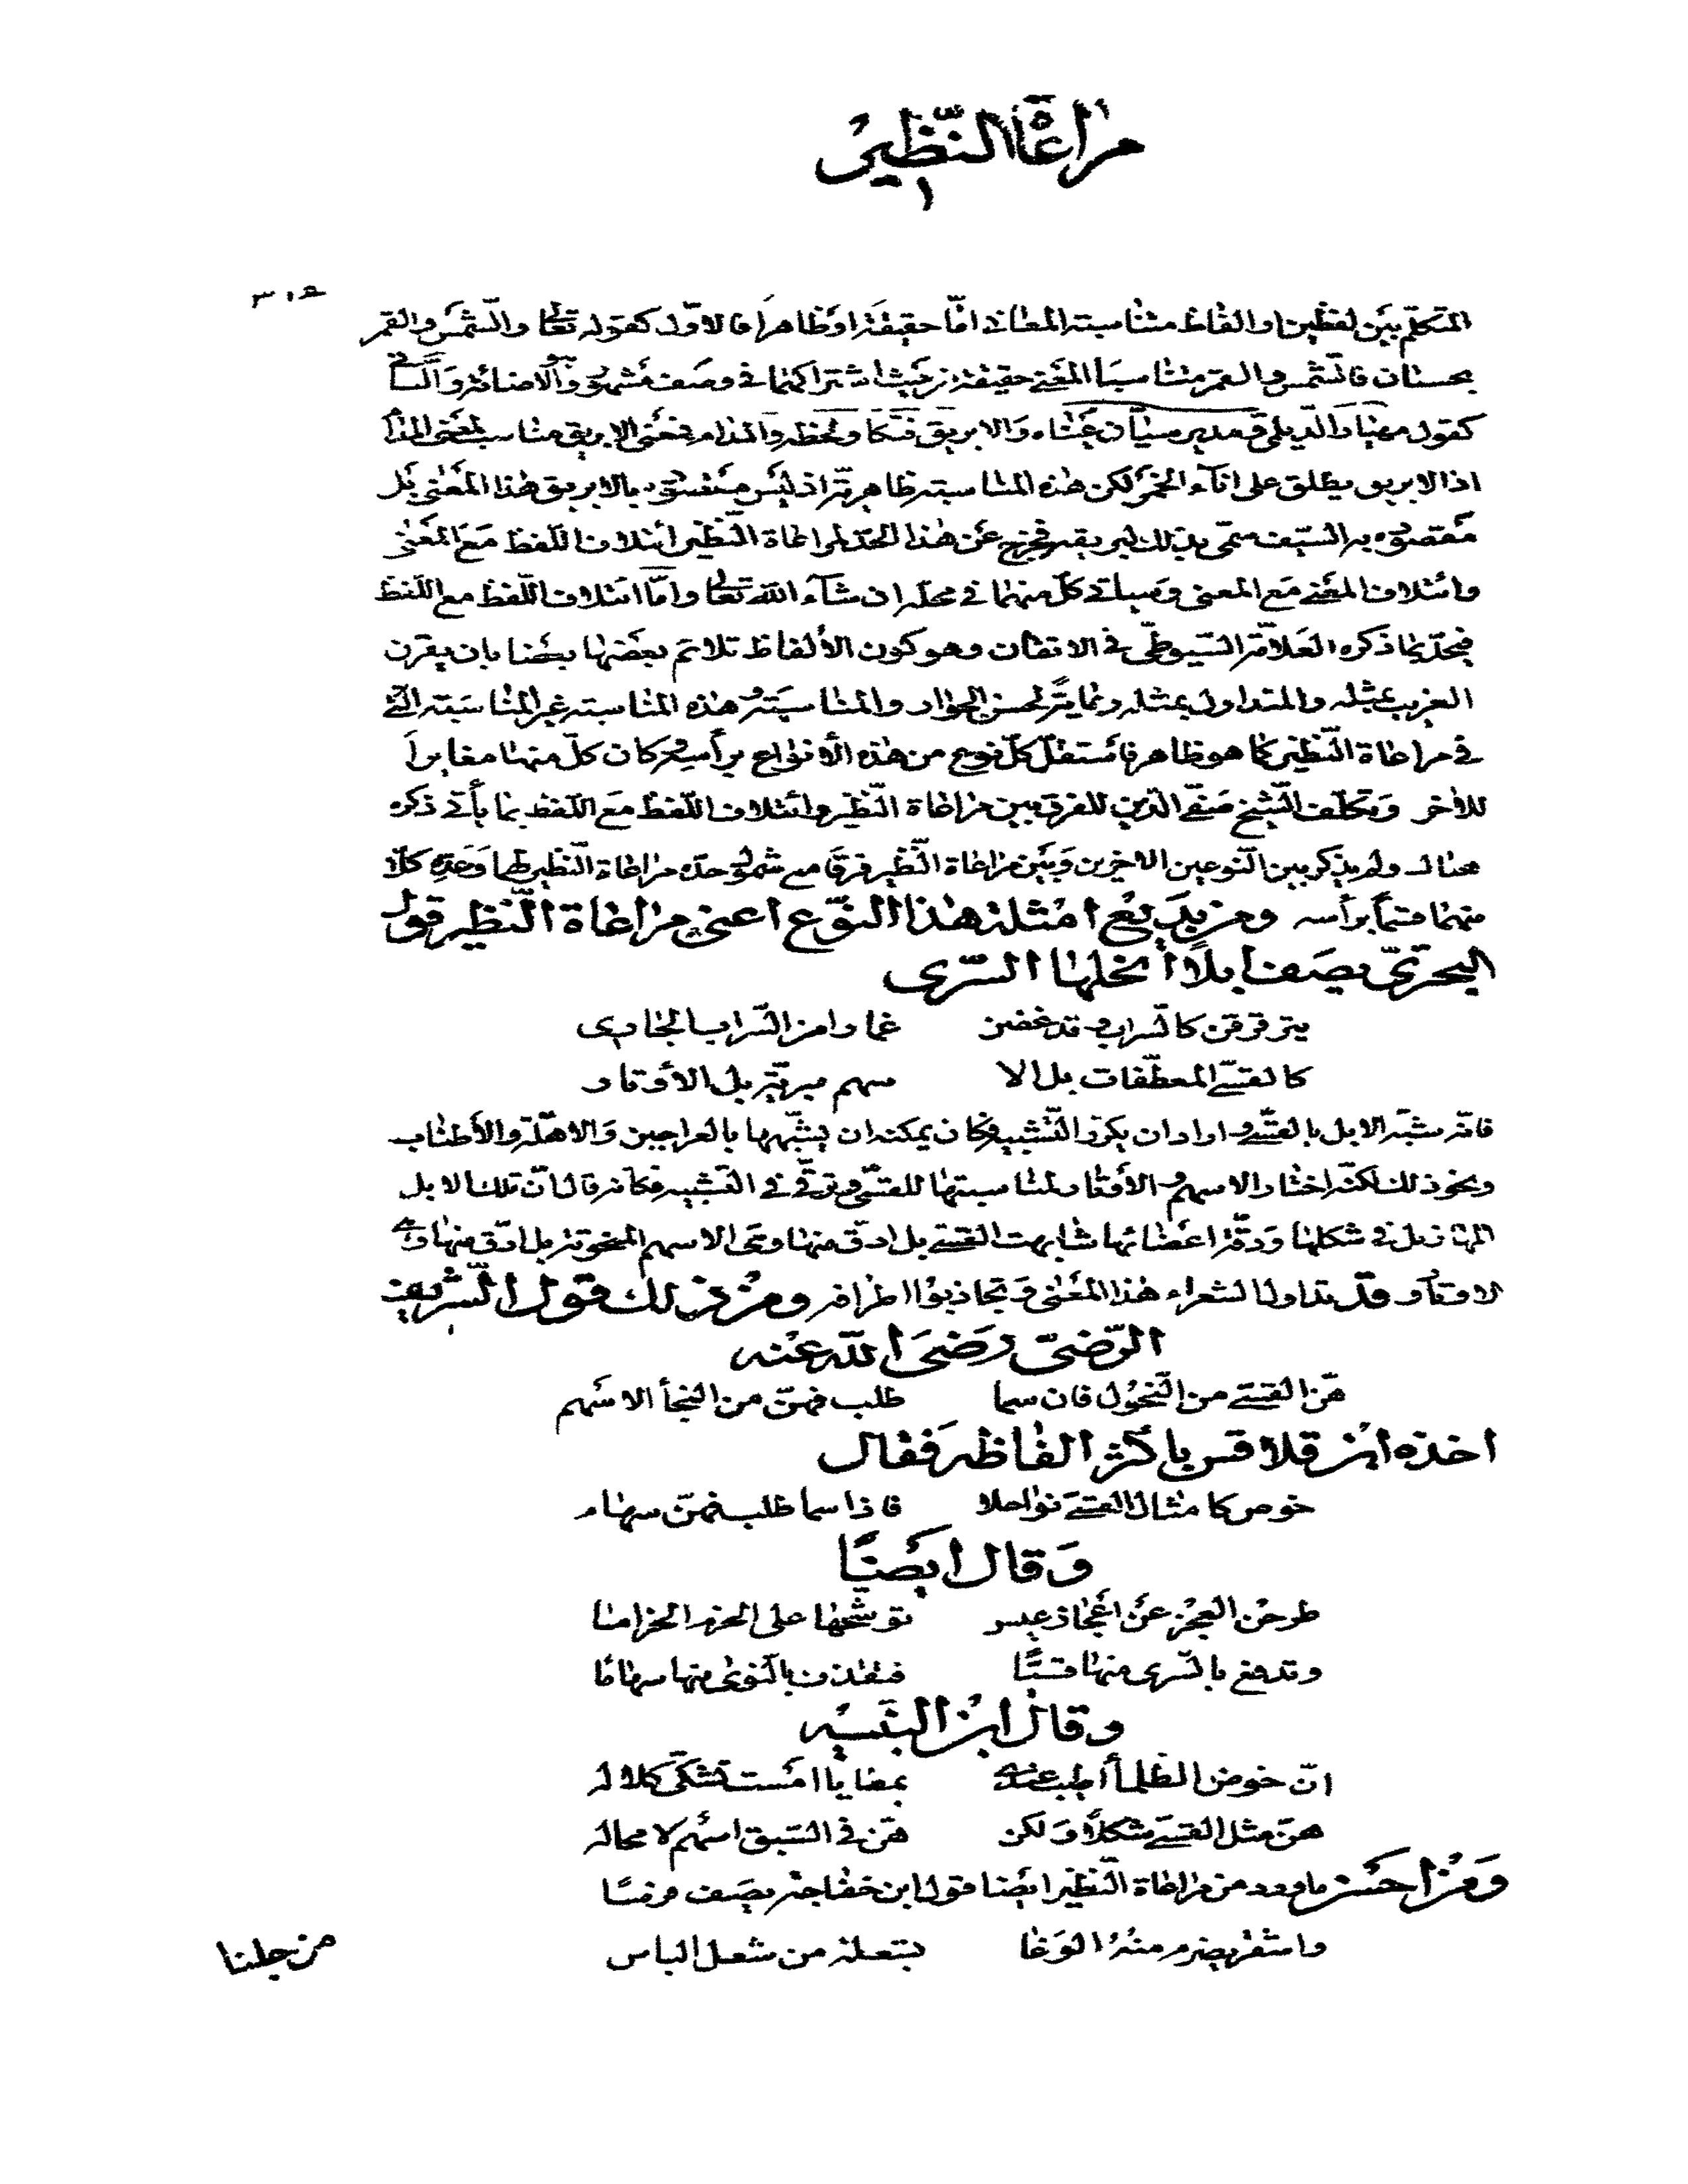 مراعاة النّظير
١
٣١٥
المتكلّم بين لفظين او الفاظ متناسبة المعاني امّا حقيقة او ظاهرا فالاوّل كقوله تعالى والشّمس والقمر
بحسبان فالشّمس والقمر متناسبا المعنى حقيقة من حيث اشتراكهما في وصف مشهور وهو الاضائة والثّاني
كقول مهيار الدّيلمي ومدير سيّان عيناه والابريق فتكا ولحظه والمدام فمعنى الابريق مناسب لمعنى المدام
اذ الابريق يطلق على اناء الخمر لكن هذه المناسبة ظاهريّة اذ ليس مقصوده بالابريق هذا المعنى بل
مقصوده به السّيف سمّى بذلك لبريقه فخرج عن هذا الحدّ لمراعاة النّظير ائتلاف اللّفظ مع المعنى
وائتلاف المعنى مع المعنى وسيأتي كلّ منهما في محلّه ان شاء الله تعالى وامّا ائتلاف اللّفظ مع اللّفظ
فيحدّ بما ذكره العلاّمة السّيوطي في الاتقان وهو كون الألفاظ تلائم بعضها بعضا بان يقرن
الغريب بمثله والمتداول بمثله رعاية لحسن الجوار والمناسبة وهذه المناسبة غير المناسبة الّتي
في مراعاة النّظير كما هو ظاهر فاستقلّ كلّ نوع من هذه الأنواع برأسه وكان كلّ منها مغايرا
للآخر وتكلّف الشّيخ صفيّ الدّين للفرق بين مراعاة النّظير وائتلاف اللّفظ مع اللّفظ بما يأتي ذكره
هناك ولم يذكر بين النّوعين الاخيرين وبين مراعاة النّظير فرقا مع شمول حدّه مراعاة النّظير لهما وعدّه كلّا
منهما قسما برأسه ومن بديع امثلة هذا النّوع اعني مراعاة النّظير قول
البحتريّ يصف ابلاً أنحلها السّرى
يترقرقن كالسّراب وقد خضن غمارا من السّراب الجاري
كالقسيّ المعطّفات بل الا سهم مبريّة بل الأوتار
فانّه شبّه الابل بالقسيّ و اراد ان يكرّر التّشبيه فكان يمكنه ان يشبّهها بالعراجين والاهلّة والأطناب
ونحو ذلك لكنّه اختار الاسهم و الأوتار لمناسبتها للقسيّ وترقّى في التّشبيه فكانّه قال انّ تلك الابل
المهازيل في شكلها ودقّة اعضائها شابهت القسيّ بل ادقّ منها وهى الاسهم المنحوتة بل ادقّ منها وهى
الاوتار وقد تداول الشعراء هذا المعنى وتجاذبوا اطرافه ومن ذلك قول الشّريف
الرّضيّ رضي الله عنه
هنّ القسيّ من النّحول فان سما طلب فهنّ من النجأ الاسهم
اخذه ابن قلاقس باكثر الفاظه فقال
خوص كامثال القسيّ نواحلا فاذا سما طلب فهنّ سهام
وقال ايضًا
طرحن العجز عن اعجاز عيس توشّحها على الحزم الحزاما
وتدفع بالسّرى منها قسيًّا فتقذف بالنّوى منها سهامًا
وقال ابن النبيه
انّ خوض الظلمأ اطيب عندي بمطايا امست تشكّى كلاله
هنّ مثل القسيّ شكلاً ولكن هنّ في السّبق اسهم لا محاله
ومن احسن ما ورد من مراعاة النّظير ايضا قول ابن خفاجة يصف فرسًا
واشقر يضرم منه الوغا بشعلة من شعل الباس
من جلنا